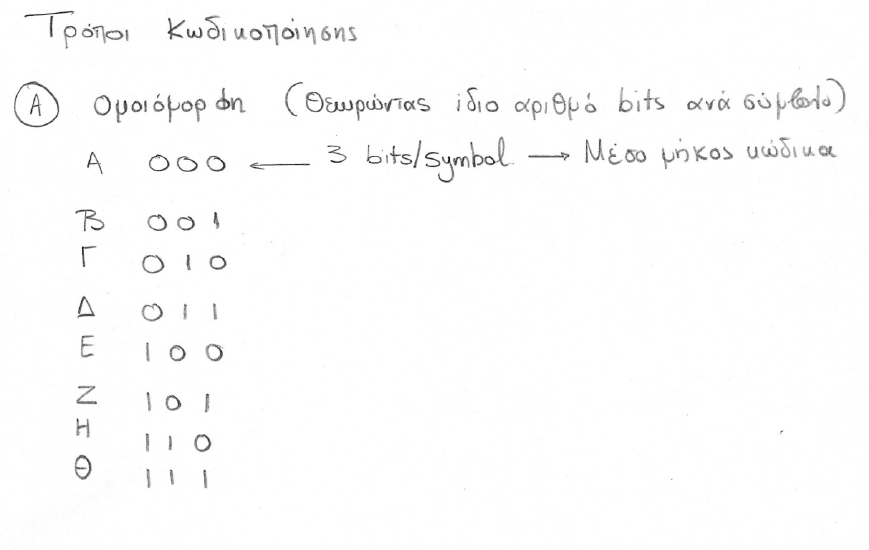 Τρόποι Κωδικοποίησης
Α Ομοιόμορφη (Θεωρώντας ίδιο αριθμό bits ανά σύμβολο)
Α 000 ← 3 bits/symbol → Μέσο μήκος κώδικα
Β 001
Γ 010
Δ 011
Ε 100
Ζ 101
Η 110
Θ 111